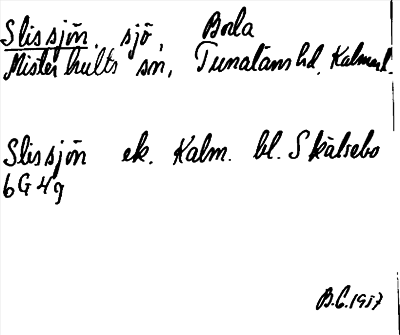 Slissjön, sjö, Borla
Misterhults sn, Tunaläns hd, Kalmarl.
Slissjön ek. Kalm. bl. Skälsebo
6G 4g
B.C. 1957